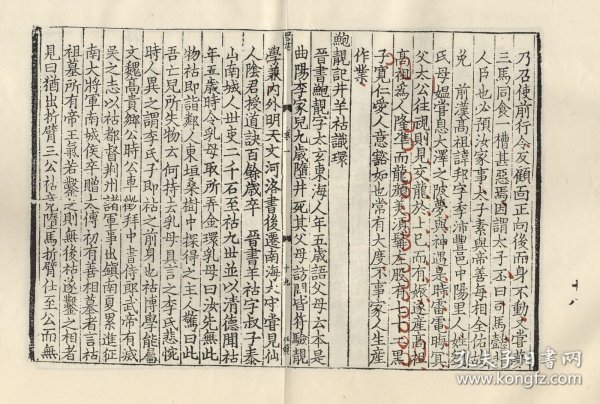 乃召使前行令反顧面正向後而身不動又嘗夢
三馬同食一槽甚惡焉因謂太子丕曰司馬懿非
人臣也必預汝家事太子素與帝善每相全佑故
免 前漢高祖諱邦字季沛豐邑中陽里人姓劉
氏母媼嘗息大澤之陂夢與神遇是時雷電晦冥
父太公往視則見交龍於上已而有娠遂產高祖
高祖為人隆準而龍顏美須髯左股有七十二黑
子寬仁愛人意豁如也常有大度不事家人生產
作業
鮑靚記井羊祜識環
晉書鮑靚字太玄東海人年五歲語父母云本是
曲陽李家兒九歲墮井死其父母訪問皆符驗靚
學兼內外明天文河洛書後遷南海太守嘗見仙
人陰君授道訣百餘歲卒 晉書羊祜字叔子泰
山南城人世吏二千石至祜九世並以清德聞祜
年五歲時令乳母取所弄金環乳母曰汝先無此
物祜即詣鄰人東垣桑樹中探得之主人驚曰此
吾亡兒所失物云何持去乳母具言之李氏悲惋
時人異之謂李氏子即祜之前身也祜博學能屬
文魏高貴鄉公時公車徵拜中書侍郎武帝有滅
吳之志以祜都督荊州諸軍事出鎮南夏累進征
南大將軍南城侯卒贈太傅初有善相墓者言祜
祖墓所有帝王氣若鑿之則無後祜遂鑿之相者
見曰猶出折臂三公祜竟墮馬折臂仕至公而無
孔夫子旧书网
www.kongfz.com